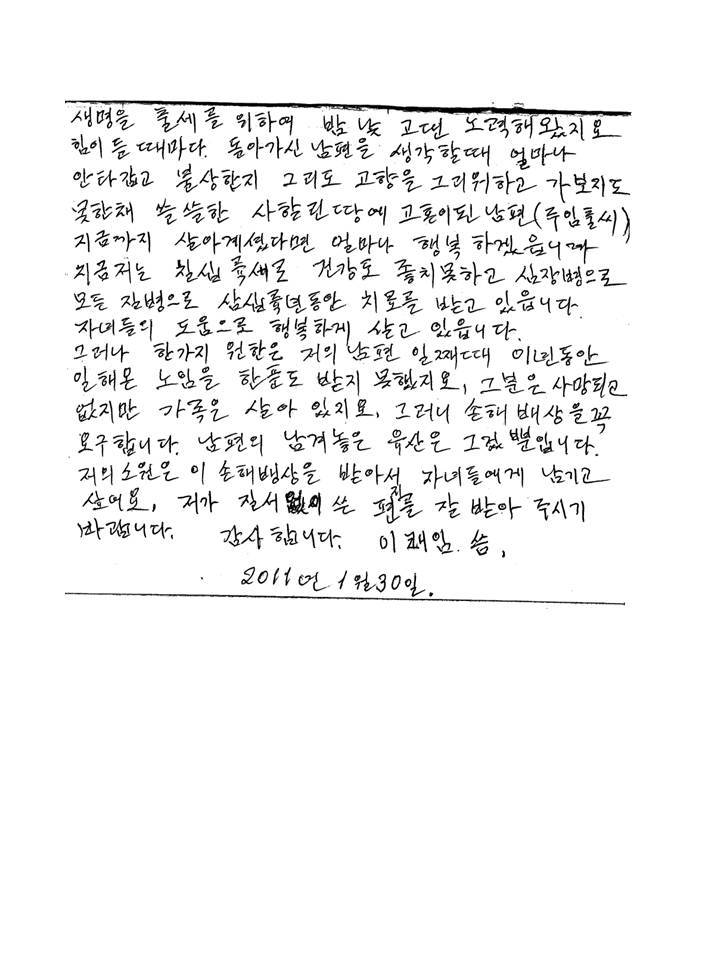 생명을 풀세를 위하여 밤 낮 고던 노력해왔지요
힘이 듣때마다. 돌아가신 남편을 생각할때 얼마나
안타갑고 불상한지 그리도 고향을 그리워하고 가보지도
못한채 쓸쓸한 사할린땅에 고혼이된 남편(주임홀씨)
지금까지 살아계셨다면 얼마나 행복 하겠읍니까
지금저는 칠십 륙세로 건강도 좋치못하고 심장병으로
모든 잔병으로 삼십륙년동안 치료를 받고 있읍니다.
자녀들의 도움으로 행복하게 살고 있읍니다.
그러나 한가지 원한은 저의 남편 일째때 이년동안
일해온 노임을 한푼도 받지 못했지요, 그분은 사망되고
없지만 가족은 살아 있지요, 그러니 손해배상을 꼭
요구합니다. 남편의 남겨놓은 유산은 그것 뿐입니다.
저의소원은 이 손해뱃상을 받아서 자녀들에게 남기고
싶어요, 저가 질서없이 쓴 편지를 잘 받아 주시기
바랍니다. 감사 합니다. 이 쌔임. 씀,
2011년 1월30일.